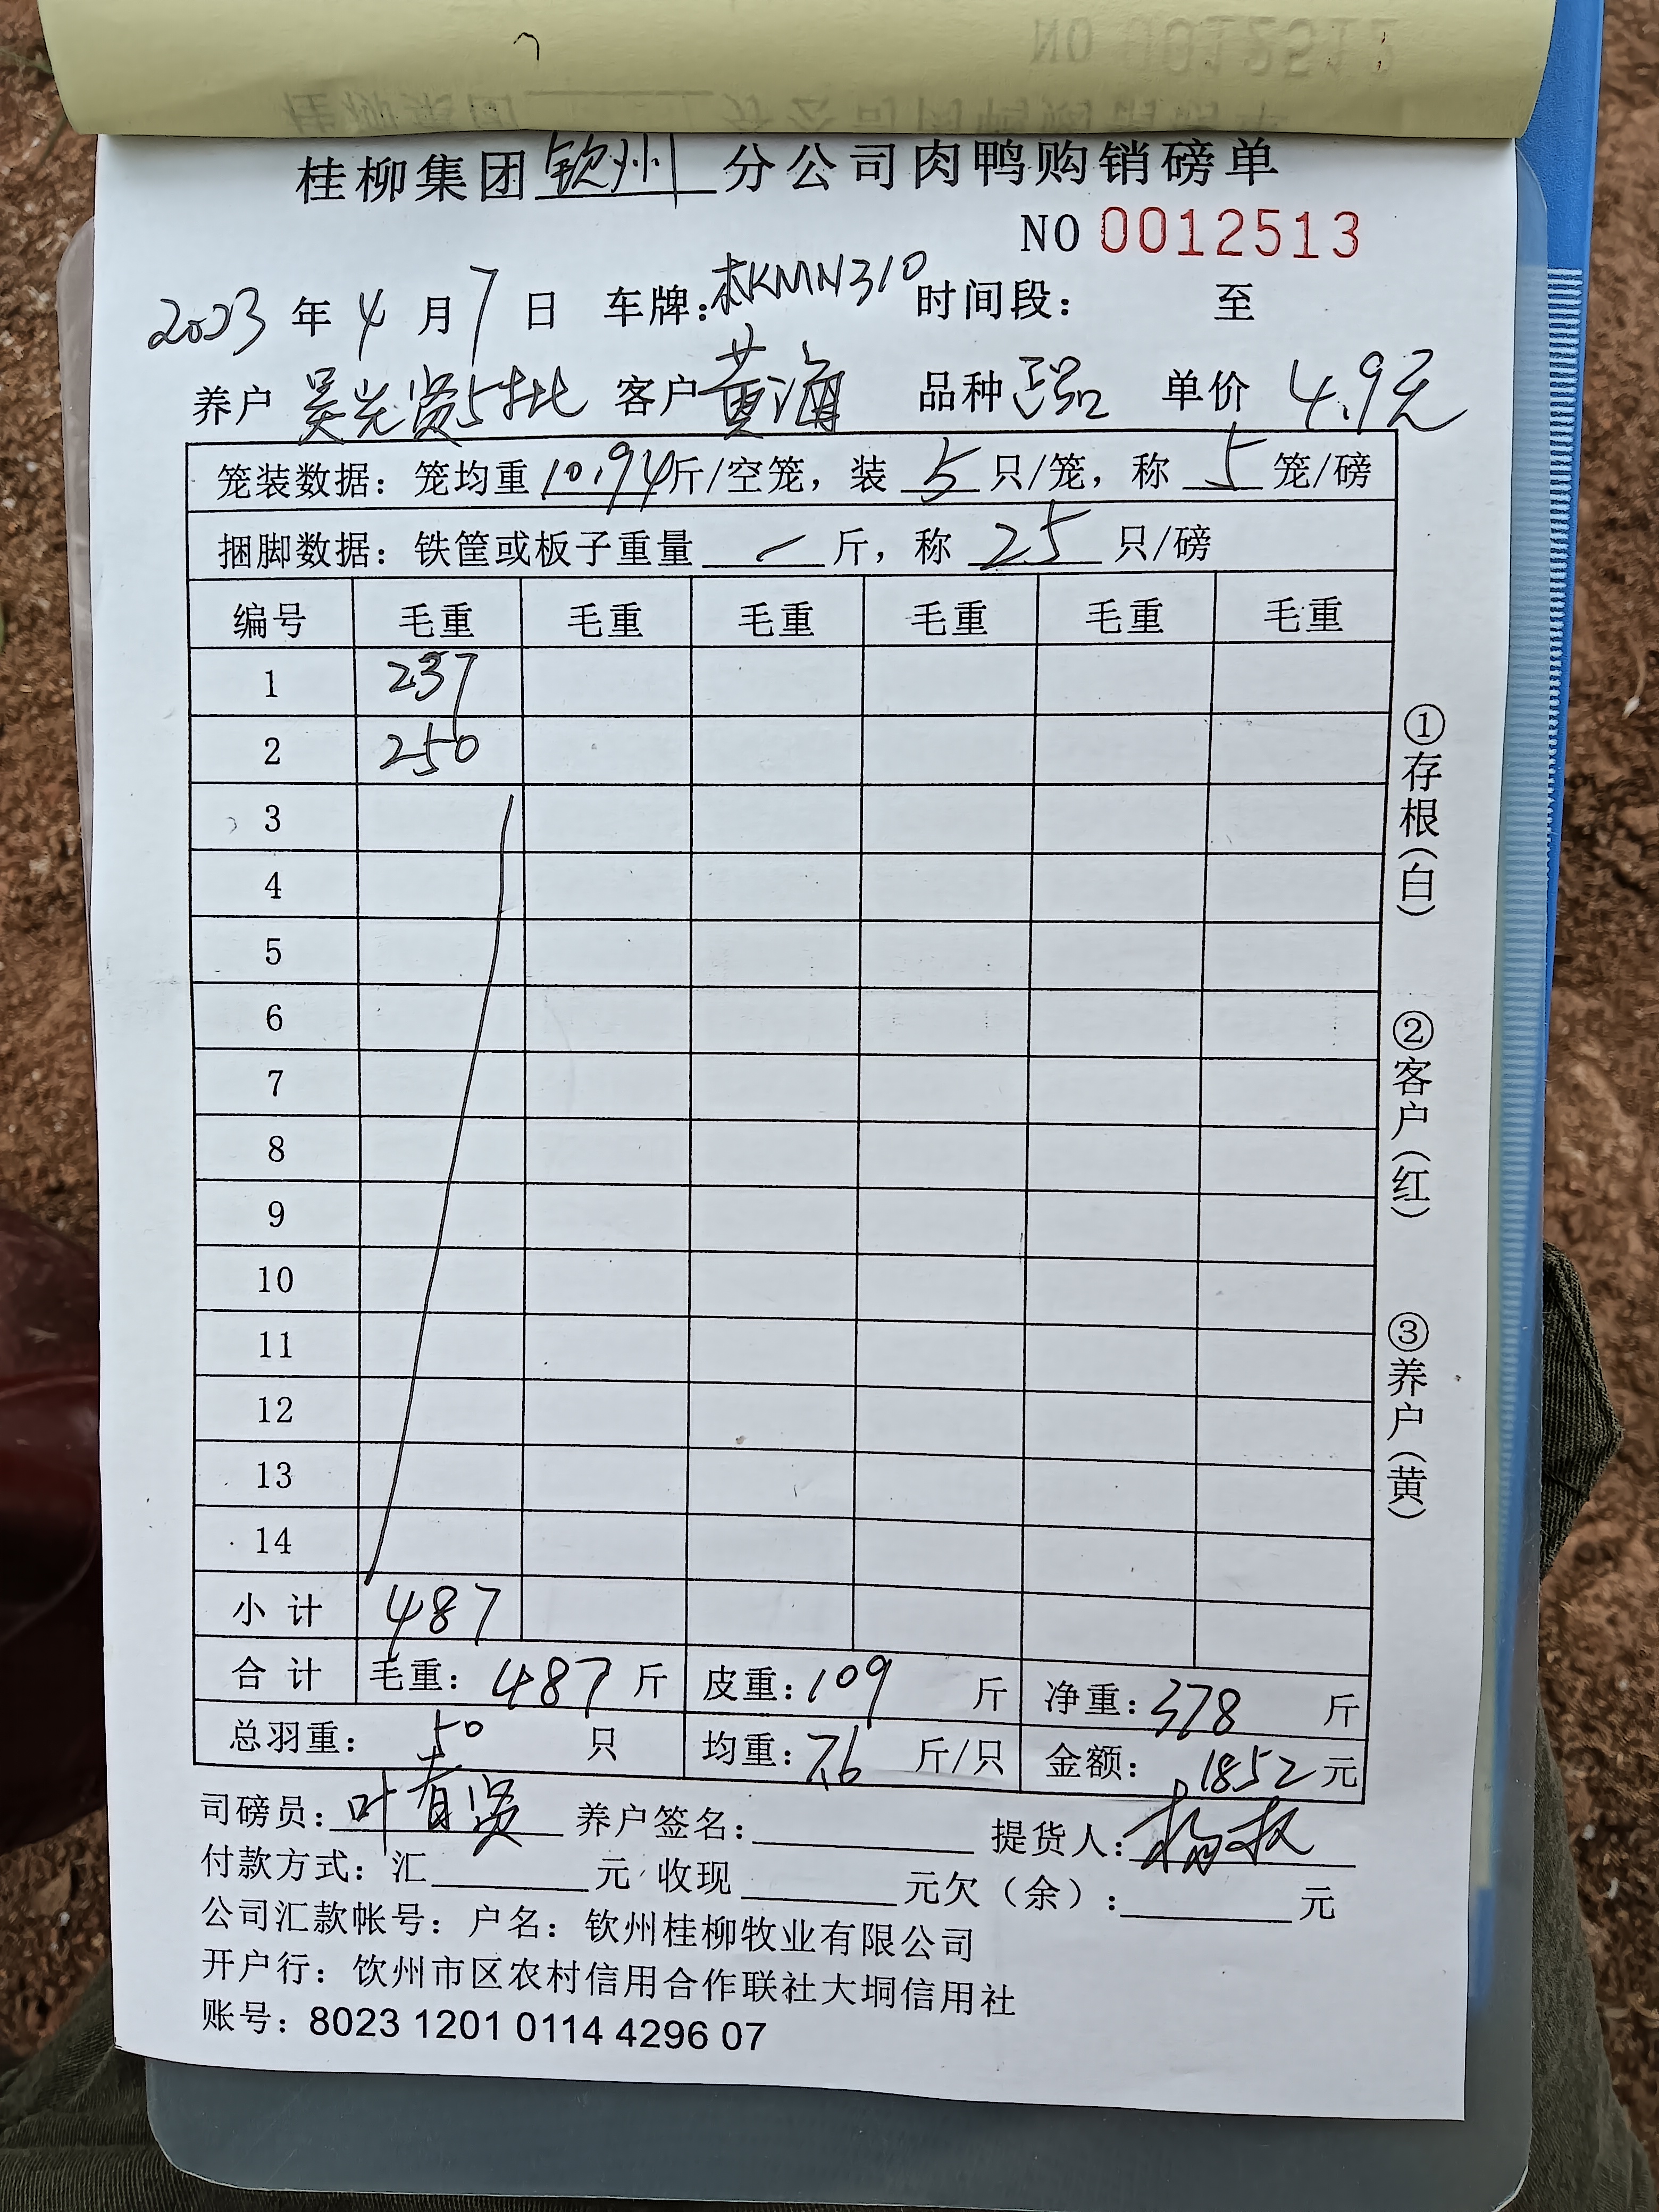 桂柳集团钦州分公司肉鸭购销磅单
NO 0012513
2023年4月7日 车牌:桂KMN310 时间段: 至
养户 吴光贤5批 客户 黄海 品种 单价 4.9元
笼装数据:笼均重10.94斤/空笼,装5只/笼,称5笼/磅
捆脚数据:铁筐或板子重量 / 斤,称25只/磅
编号 毛重 毛重 毛重 毛重 毛重 毛重
1 237
2 250
3
4
5
6
7
8
9
10
11
12
13
14
小计 487
合计 毛重:487斤 皮重:109斤 净重:378斤
总羽重:50只 均重:7.6斤/只 金额:1852元
司磅员:叶育贤 养户签名: 提货人:
付款方式:汇 元 收现 元欠(余): 元
公司汇款帐号:户名:钦州桂柳牧业有限公司
开户行:钦州市区农村信用合作联社大垌信用社
账号:8023 1201 0114 4296 07
①存根(白)
②客户(红)
③养户(黄)